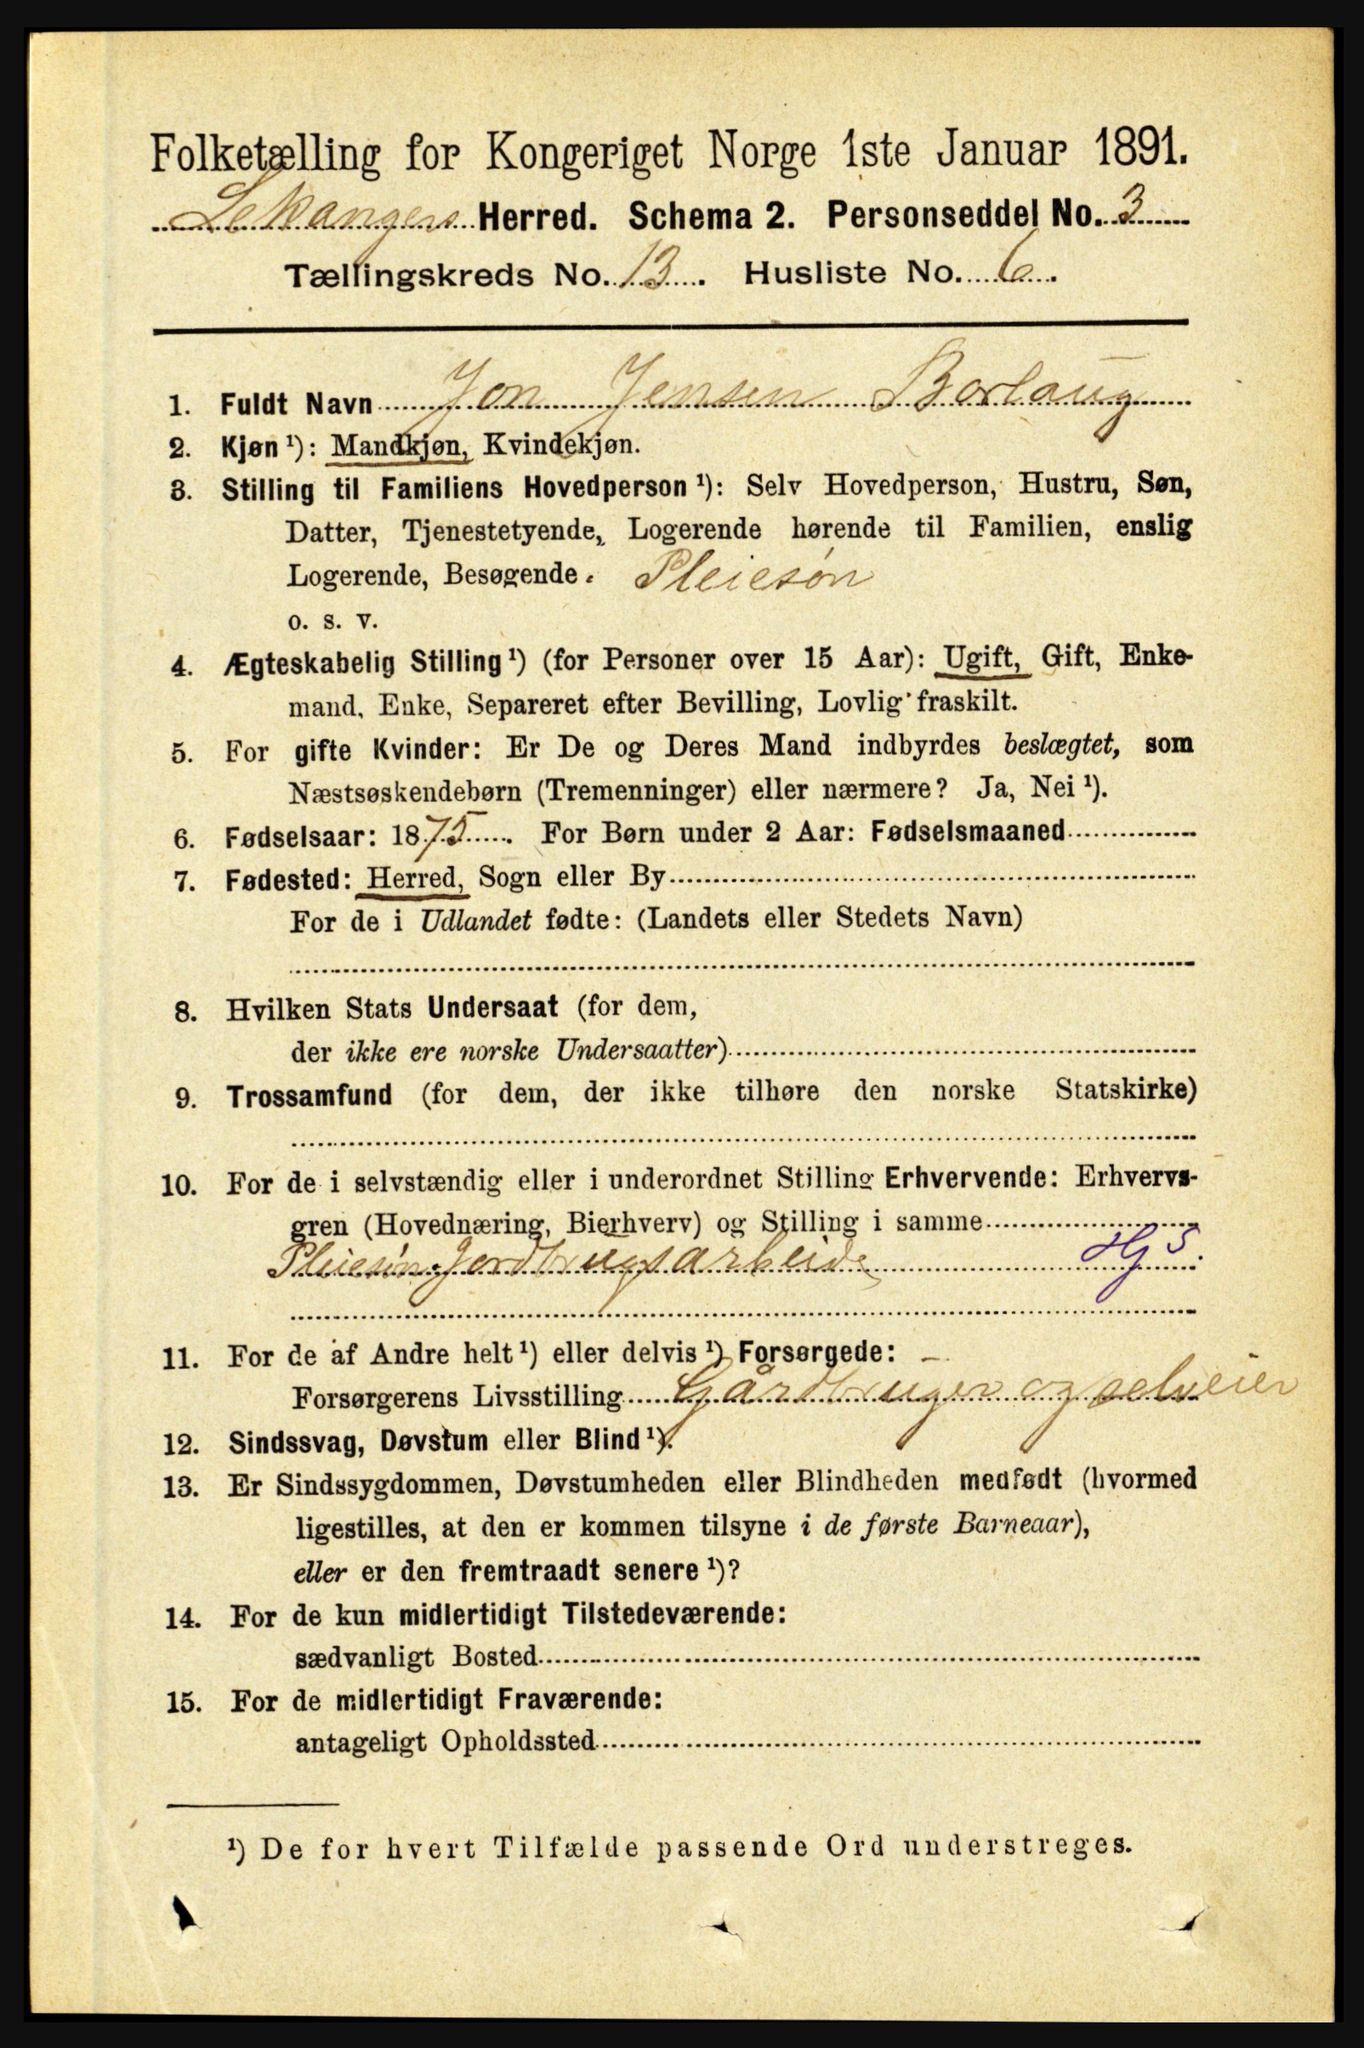 Folketælling for Kongeriget Norge 1ste Januar 1891.
Lekangers Herred. Schema 2. Personseddel No. 3
Tællingskreds No. 13. Husliste No. 6.
1. Fuldt Navn Jon Jensen Borlaug
2. Kjøn ¹): Mandkjøn, Kvindekjøn.
3. Stilling til Familiens Hovedperson ¹): Selv Hovedperson, Hustru, Søn,
Datter, Tjenestetyende, Logerende hørende til Familien, enslig
Logerende, Besøgende. Pleiesøn
o. s. v.
4. Ægteskabelig Stilling ¹) (for Personer over 15 Aar): Ugift, Gift, Enke-
mand, Enke, Separeret efter Bevilling, Lovlig fraskilt.
5. For gifte Kvinder: Er De og Deres Mand indbyrdes beslægtet, som
Næstsøskendebørn (Tremenninger) eller nærmere? Ja, Nei ¹).
6. Fødselsaar: 1875. For Børn under 2 Aar: Fødselsmaaned
7. Fødested: Herred, Sogn eller By
For de i Udlandet fødte: (Landets eller Stedets Navn)
8. Hvilken Stats Undersaat (for dem,
der ikke ere norske Undersaatter)
9. Trossamfund (for dem, der ikke tilhøre den norske Statskirke)
10. For de i selvstændig eller i underordnet Stilling Erhvervende: Erhvervs-
gren (Hovednæring, Bierhverv) og Stilling i samme
Pleiesøn. Jordbrugsarbeide Hj S.
11. For de af Andre helt ¹) eller delvis ¹) Forsørgede: –
Forsørgerens Livsstilling Gårdbruger og selveier
12. Sindssvag, Døvstum eller Blind ¹).
13. Er Sindssygdommen, Døvstumheden eller Blindheden medfødt (hvormed
ligestilles, at den er kommen tilsyne i de første Barneaar),
eller er den fremtraadt senere ¹)?
14. For de kun midlertidigt Tilstedeværende:
sædvanligt Bosted
15. For de midlertidigt Fraværende:
antageligt Opholdssted
¹) De for hvert Tilfælde passende Ord understreges.